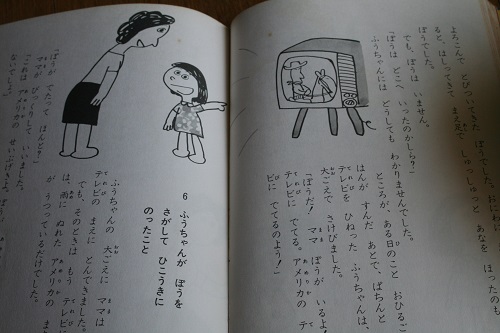 よろこんで とびついてきた ぼうでした。
ると、はしってきて まえ足で しゅっしゅっと あなを ほったのも
ぼうでした。
でも、ぼうは いません。
ぼうは どこへ いったのかしら？
ふうちゃんには どうしても わかりませんでした。
ところが、ある日のこと おひるご
はんが すんだ あとで、ぱちんと
テレビを ひねった ふうちゃんは、
大ごえで さけびました。
「ぼうだ！ ママ ぼうが いるよ！
テレビに でてる。アメリカの テレ
ビに でてるのよう！」
6 ふうちゃんが ぼうを
さがして ひこうきに
のったこと
ふうちゃんの 大ごえに ママは
テレビの まえに とんできました。
でも、そのときは もう テレビに
は、雨に ぬれた アメリカの
が うつっているだけでした。
「ぼうが でてたって ほんと？」
ママが びっくりして いいました。
「これは アメリカの せいぶげきよ。